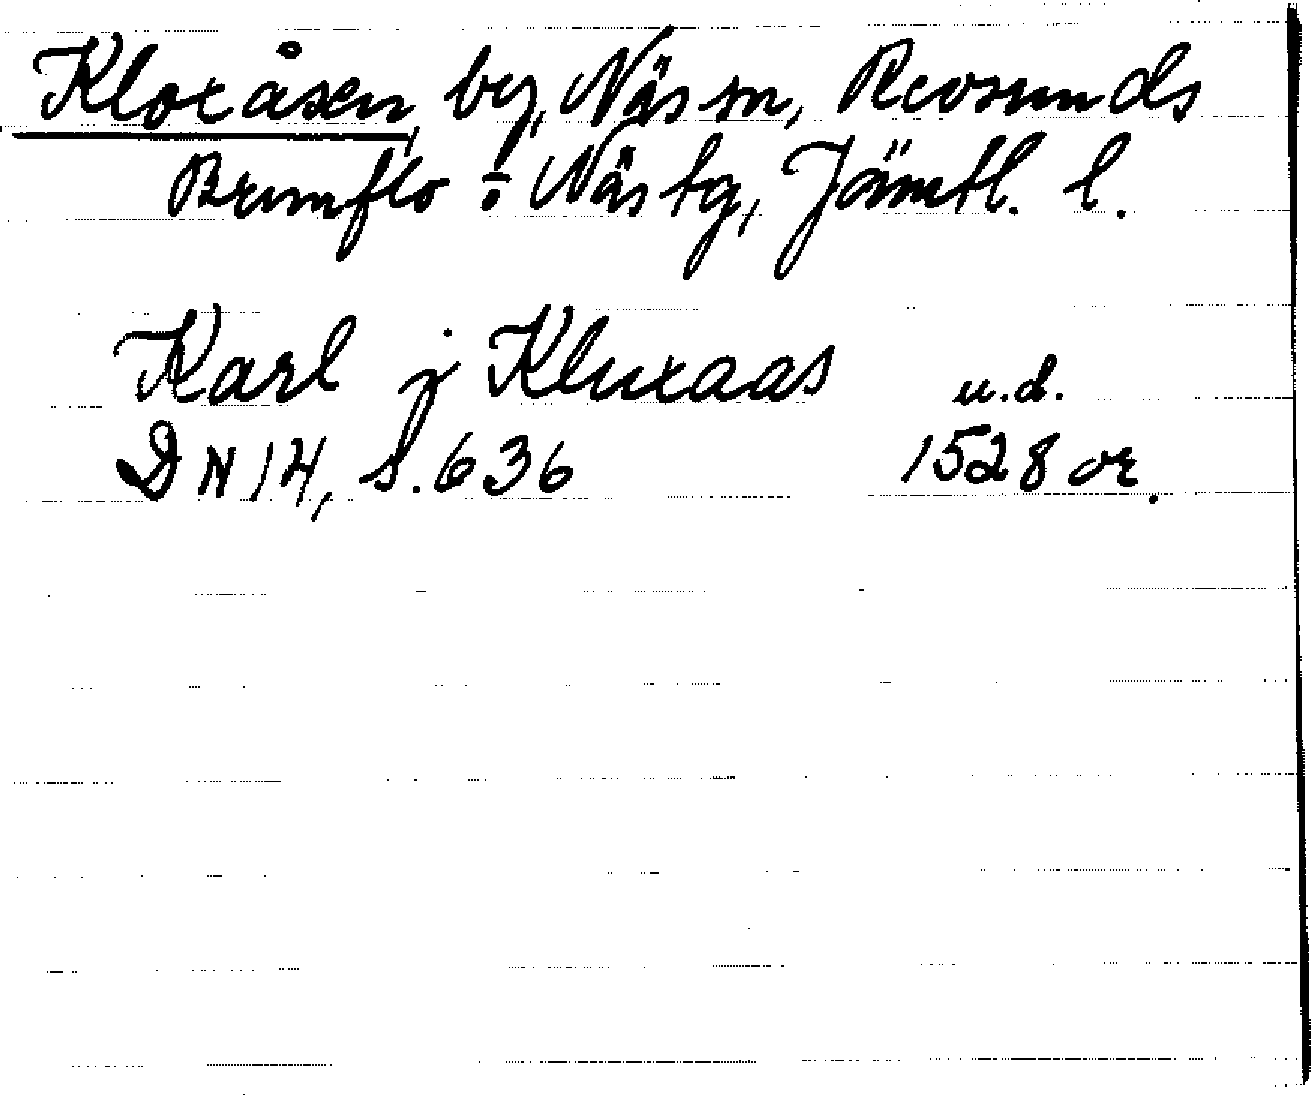 Kloxåsen, by, Näs sn, Revsunds
Brunflo o Näs tg, Jämtl. l.
Karl j Kluxaas u.d.
DN 14, s. 636 1528 or.